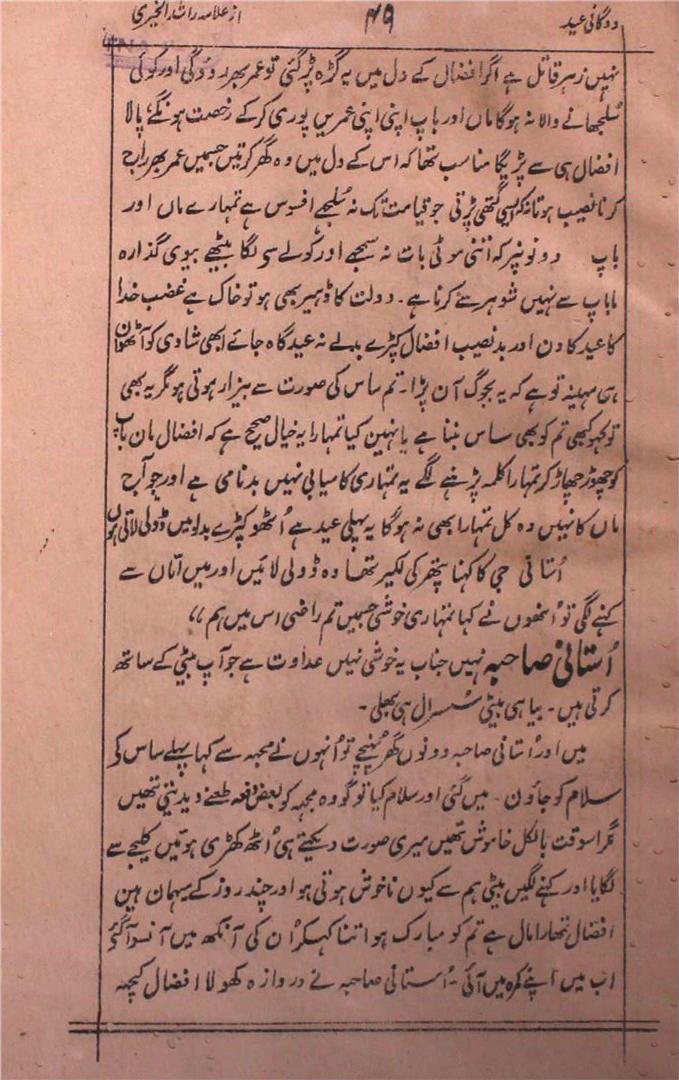 دوگانی عید ۴۹ از علامہ راشد الخیری
نہیں زہر قاتل ہے اگر افضال کے دل میں یہ گرہ پڑ گئی تو عمر بھر روؤگی اور کوئی
سُلجھانے والا نہ ہوگا ماں اور باپ اپنی اپنی عمریں پوری کرکے رخصت ہونگے، پالا
افضال ہی سے پڑیگا مناسب تھا کہ اس کے دل میں وہ گھر کرتیں جسمیں عمر بھر راج
کرنا نصیب ہوتا نہ کہ ایسی گتھی پڑتی جو قیامت تک نہ سُلجھے افسوس ہے تمہارے ماں اور
باپ دونونپر کہ اتنی موٹی بات نہ سمجھے اور کولے سی لگا بیٹھے بیوی گذارہ
ماباپ سے نہیں شوہر سے کرنا ہے۔ دولت کا ڈھیر بھی ہو تو خاک ہے غضب خدا
کا عید کا دن اور بدنصیب افضال کپڑے بدلے نہ عید گاہ جائے ابھی شادی کو آٹھواں
ہی مہینہ تو ہے کہ یہ بجوگ آن پڑا۔ تم ساس کی صورت سے بیزار ہوتی ہو مگر یہ بھی
تو کہو کبھی تم کو بھی ساس بننا ہے یا نہین کیا تمہارا یہ خیال صحیح ہے کہ افضال مان باپ
کو چھوڑ چھاڑ کر تمہارا کلمہ پڑہنے لگے یہ تمہاری کامیابی نہیں بدنامی ہے اور جو آج
ماں کا نہیں وہ کل تمہارا بھی نہ ہوگا یہ پہلی عید ہے اُٹھو کپڑے بدلو میں ڈولی لاتی ہوں
اُستانی جی کا کہنا پتھر کی لکیر تھا وہ ڈولی لائیں اور میں اماں سے
کہنے لگی تو اُنھوں نے کہا تمہاری خوشی جسمیں تم راضی اس میں ہم ،،
اُستانی صاحبہ نہیں جناب یہ خوشی نہیں عداوت ہے جو آپ بیٹی کے ساتھ
کرتی ہیں۔ بیاہی بیٹی سُسرال ہی بھلی۔
میں اور اُستانی صاحبہ دونوں گھر پہنچے تو اُنہوں نے مجہہ سے کہا پہلے ساس کی
سلام کو جاؤن۔ میں گئی اور سلام کیا تو گو وہ مجہہ کو بعض دفعہ طعنے دیدیتی تھیں
مگر اسوقت بالکل خاموش تھیں میری صورت دیکہتے ہی اُٹھ کھڑی ہوئیں کلیجے سے
لگایا اور کہنے لگیں بیٹی ہم سے کیوں ناخوش ہوتی ہو اور چند روز کے میہمان ہین
افضال تمھارا مال ہے تم کو مبارک ہو اتنا کہکر اُن کی آنکھ میں آنسو آگئے
اب میں اپنے کمرہ میں آئی۔ اُستانی صاحبہ نے دروازہ کھولا افضال کچہہ